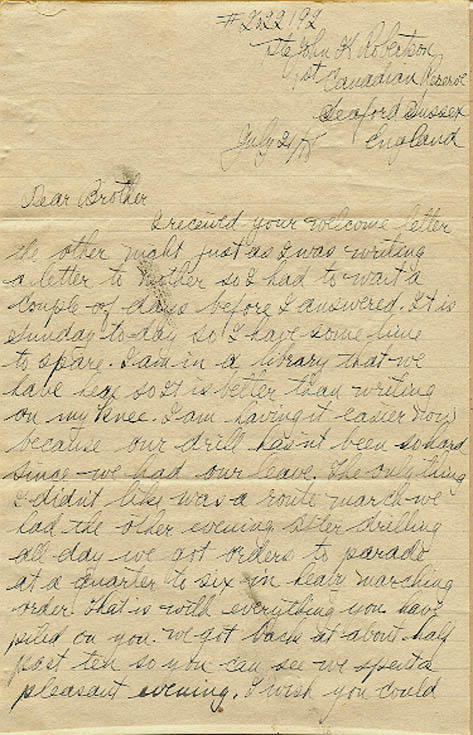 # 2122192
Pte John K Robertson
1st Canadian Reserve
Seaford Sussex
July 21/18 England
Dear Brother
I received your welcome letter
the other night just as I was writing
a letter to Mother so I had to wait a
couple of days before I answered. It is
Sunday to-day so I have some time
to spare. I am in a library that we
have here so it is better than writing
on my knee. I am having it easier now
because our drill hasn't been so hard
since we had our leave. The only thing
I didn't like was a route march we
had the other evening. After drilling
all day we got orders to parade
at a quarter to six in heavy marching
order. That is with everything you have
piled on you. We got back at about half
past ten so you can see we spent a
pleasant evening. I wish you could